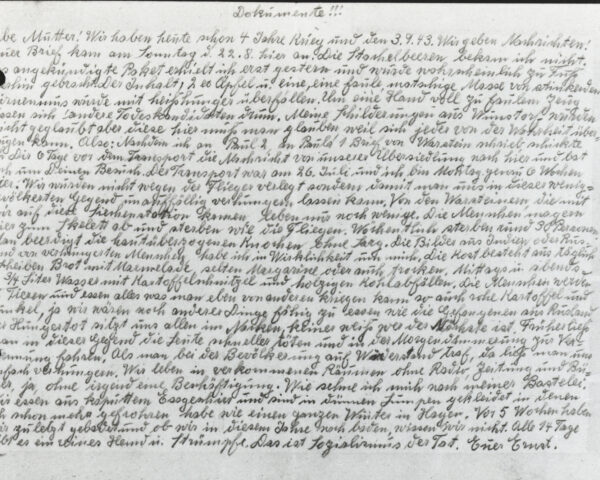 Dokumente!!!
be Mutter! Wir haben heute schon 4 Jahre Krieg und den 3.9.43. Wir geben Nachrichten!
uer Brief kam am Sonntag d. 22.8. hier an. Die Stachelbeeren bekam ich nicht.
angekündigte Paket erhielt ich erst gestern und wurde wahrscheinlich zu Fuß
gebracht. Der Inhalt, 2 Äpfel u. eine faule matschige Masse von stinkenden
wurde mit Heißhunger überfallen. Um eine Hand voll zu faulem Zeug
ssen sich andere Todeskandidaten drum. Meine Schilderungen aus Wunstorf wurden
icht geglaubt aber diese hier muß man glauben weil sich jeder von der Wahrheit über-
ugen kann. Also: Nachdem ich an Paul 2, an Paula 1 Brief von Warstein schrieb schickte
Dir 6 Tage vor dem Transport die Nachricht von unserer Übersiedlung nach hier und bat
um Deinen Besuch. Der Transport war am 26. Juli und ich bin Montag genau 6 Wochen
ier. Wir wurden nicht wegen der Flieger verlegt sondern damit man uns in dieser wenig-
völkerten Gegend unauffällig verhungern lassen kann. Von den Warsteinern, die mit
ir auf diese Siechenstation kamen, leben nur noch wenige. Die Menschen magern
ier zum Skelett ab und sterben wie die Fliegen. Wöchentlich sterben rund 30 Personen
an beerdigt die hautüberzogenen Knochen ohne Sarg. Die Bilder aus Indien oder Rus.
and von verhungerten Menschen, habe ich in Wirklichkeit um mich. Die Kost besteht aus täglich
Scheiben Brot mit Marmelade, selten Margarine oder auch trocken. Mittags u. abends
3/4 Liter Wasser mit Kartoffelschnitzel und holzigen Kohlabfällen. Die Menschen werden
Tieren und essen alles was man eben von anderen kriegen kann so auch rohe Kartoffel und
unkel, ja wir wären noch anderer Dinge fähig zu essen wie die Gefangenen aus Rußland
er Hungertot sitzt uns allen im Nacken, keiner weiß wer der Nächste ist. Früher ließ
an in dieser Gegend die Leute schneller töten und in der Morgendämmerung zur Ver-
ennung fahren. Als man bei der Bevölkerung auf Widerstand traf, da ließ man uns
nfach verhungern. Wir leben in verkommenen Räumen ohne Radio, Zeitung und Bü-
er, ja, ohne irgend eine Beschäftigung. Wie sehne ich mich nach meiner Bastelei.
ir essen aus kaputtem Essgeschirr und sind in dünnen Lumpen gekleidet in denen
h schon mehr gefroren habe wie einen ganzen Winter in Hagen. Vor 5 Wochen habe
ir zuletzt gebadet und ob wir in diesem Jahre noch baden, wissen wir nicht. Alle 14 Tage
ibt es ein reines Hemd u. Strümpfe. Das ist Sozialismus der Tat. Euer Ernst.